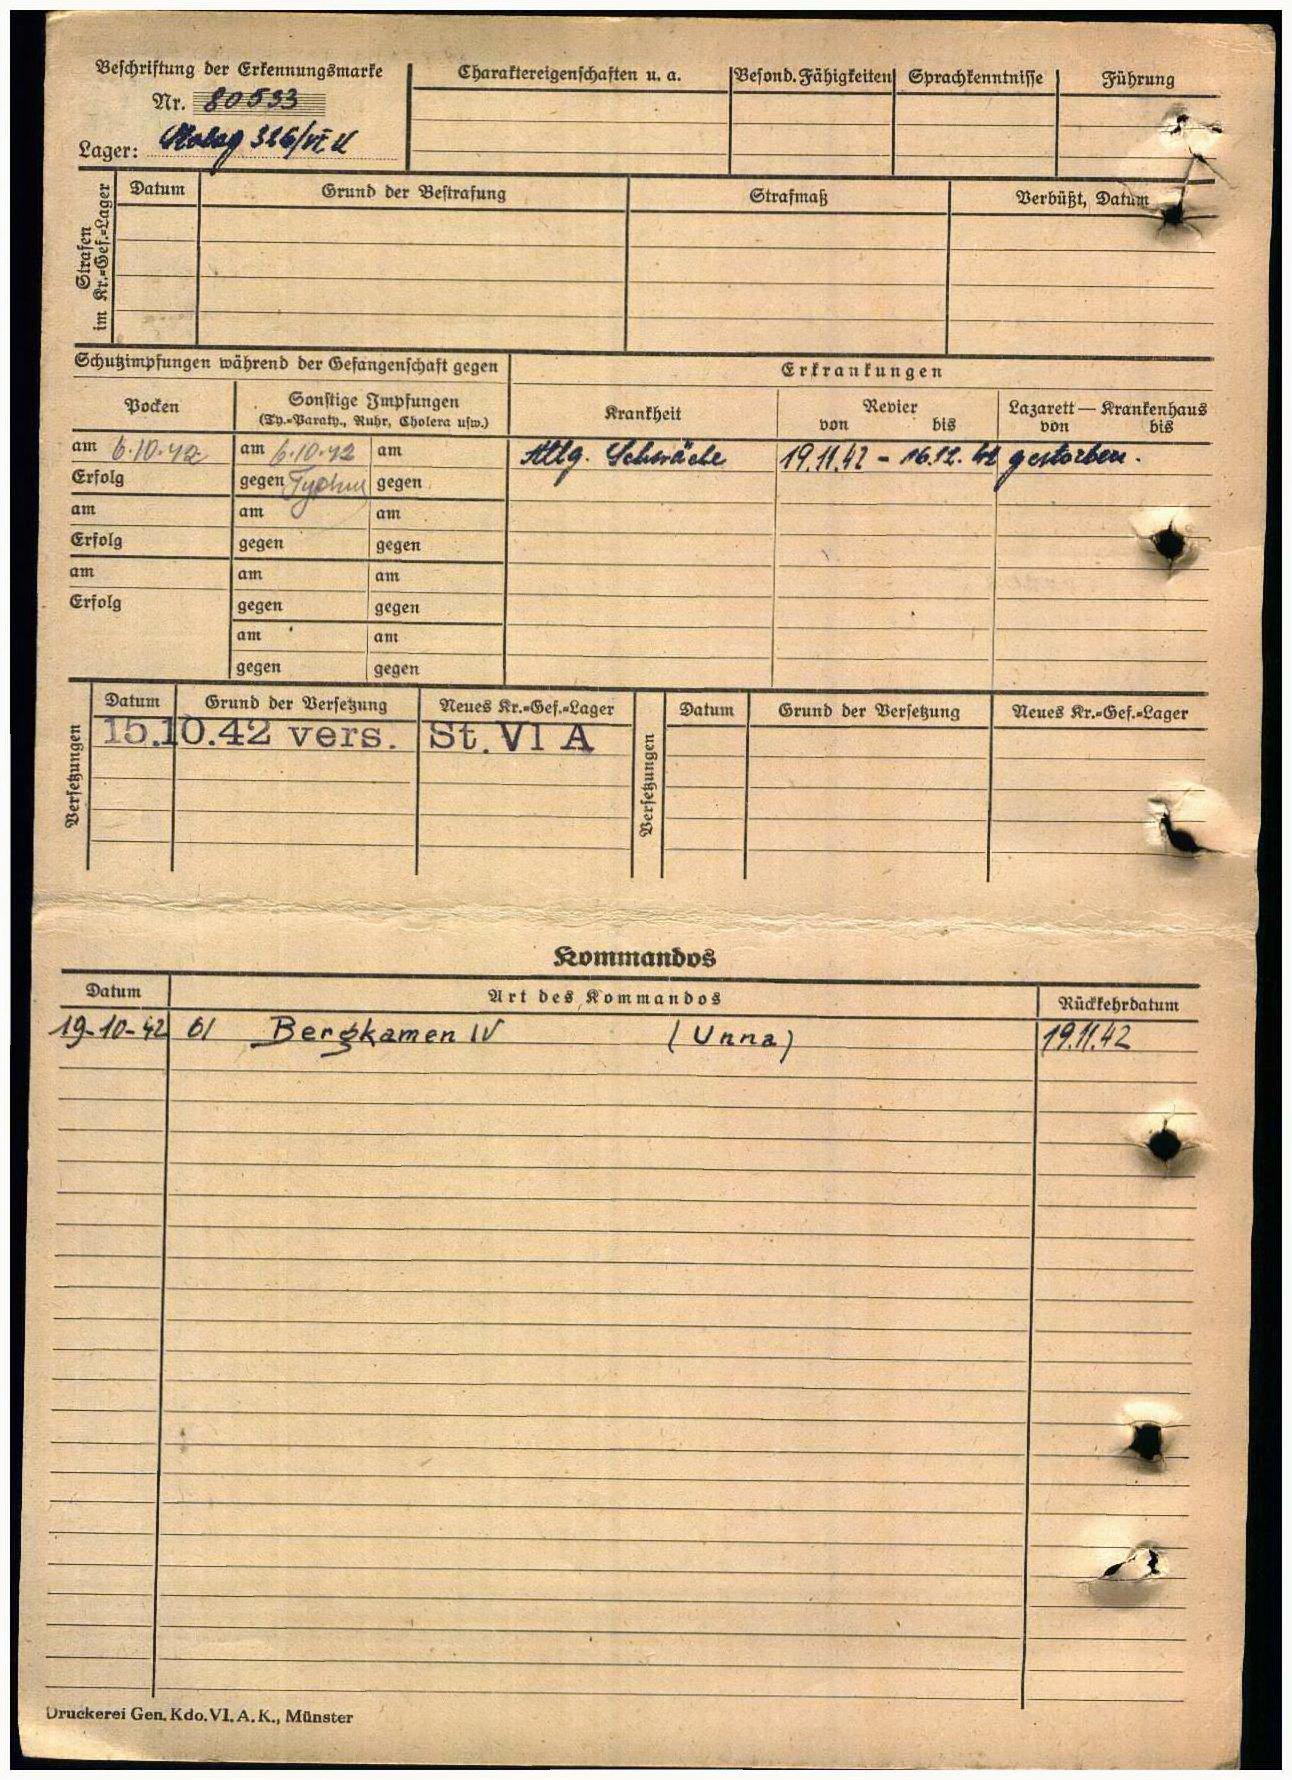 Beschriftung der Erkennungsmarke
Nr. 80533
Lager: Stalag 326/VI K
Charaktereigenschaften u. a.
Besond. Fähigkeiten
Sprachkenntnisse
Führung
Strafen im Kr.=Gef.=Lager
Datum
Grund der Bestrafung
Strafmaß
Verbüßt, Datum
Schutzimpfungen während der Gefangenschaft gegen
Erkrankungen
Pocken
Sonstige Impfungen
(Ty.=Paraty., Ruhr, Cholera usw.)
Krankheit
Revier
von bis
Lazarett — Krankenhaus
von bis
am 6.10.42 am 6.10.42 am
Allg. Schwäche 19.11.42 - 16.12.42 gestorben.
Erfolg gegen Typhus gegen
am am am
Erfolg gegen gegen
am am am
Erfolg gegen gegen
am am
gegen gegen
Versetzungen
Datum Grund der Versetzung Neues Kr.=Gef.=Lager
15.10.42 vers. St. VI A
Versetzungen
Datum Grund der Versetzung Neues Kr.=Gef.=Lager
Kommandos
Datum Art des Kommandos Rückkehrdatum
19-10-42 61 Bergkamen IV (Unna) 19.11.42
Druckerei Gen. Kdo. VI. A. K., Münster